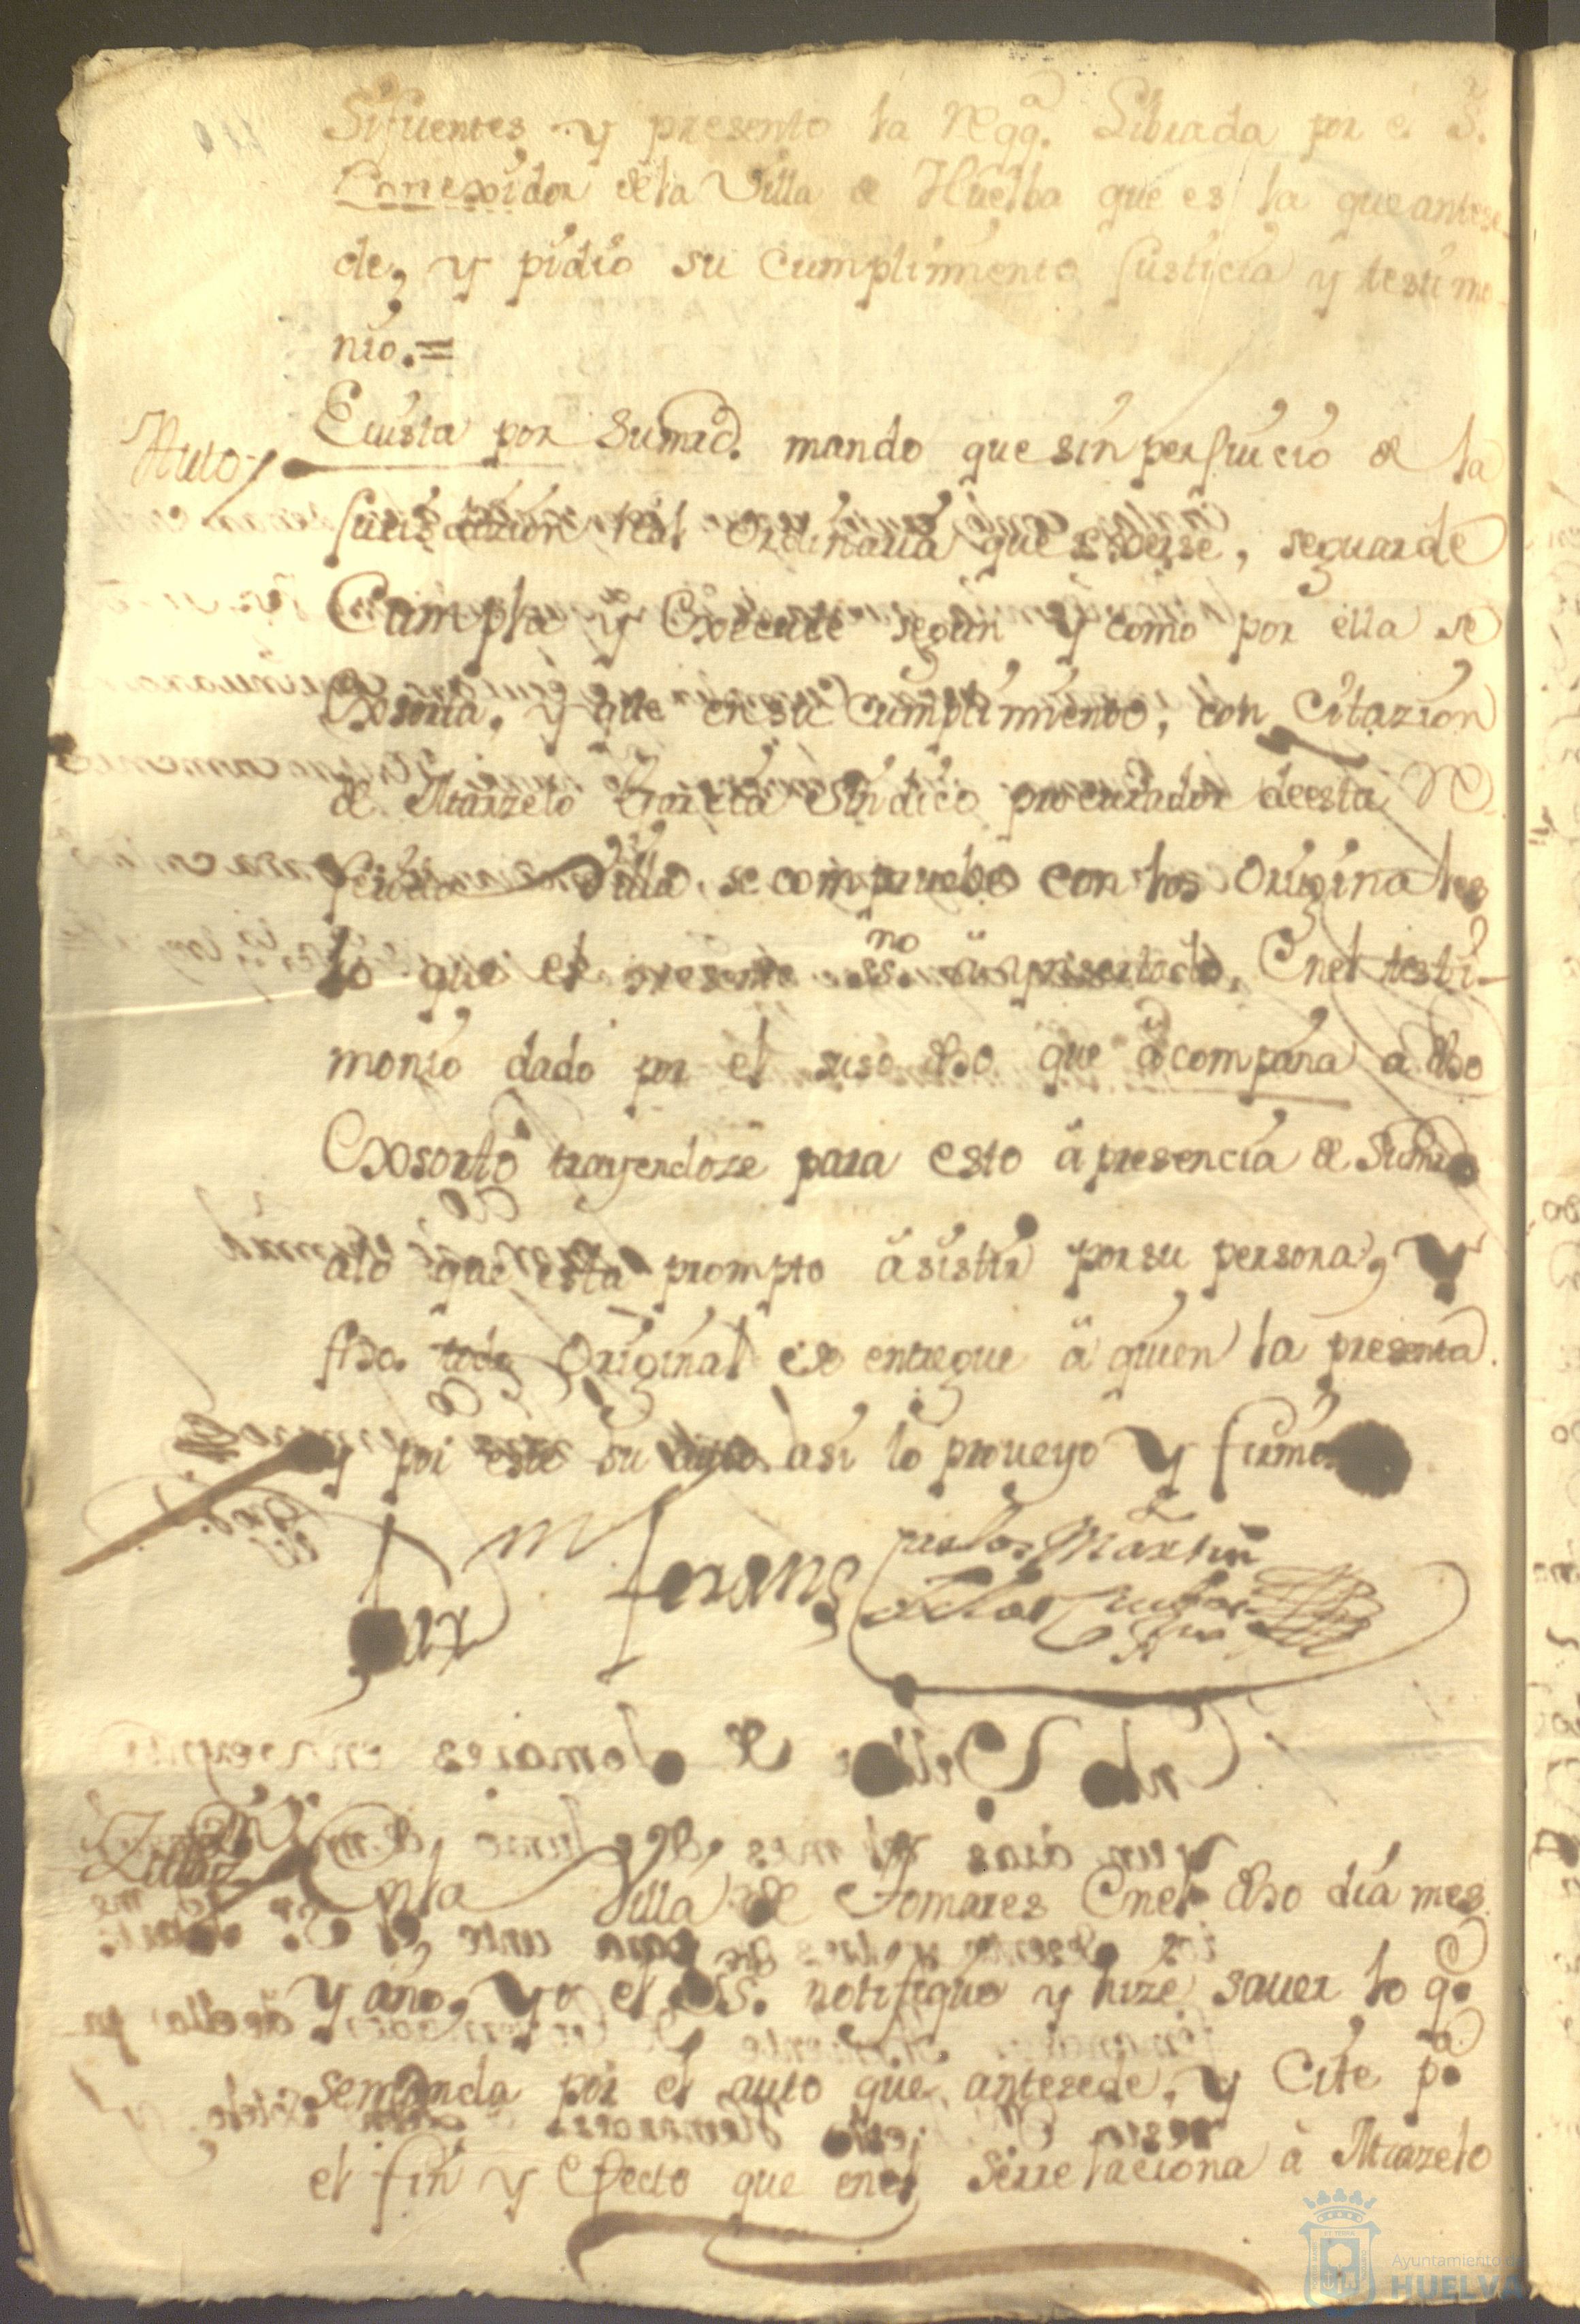 Sifuentes y presento la Reqq.ª Librada por el S.r
Correxidor de la Villa de Huelba que es la que antese
de, y pidio su Cumplimiento Justicia y testimo
nio.=
Auto
Euista por Sumrd. mando que sin perjuicio de la
Jurisdizion Real Ordinaria que exerse, se guarde
Cumpla y Execute segun y como por ella se
Exsorta, y que en su Cumplimiento, con Citazion
de Marzelo Garcia Sindico procurador de esta
Villa, se compruebe con los Originales
lo que el presente ss.no a presentado, En el testi-
monio dado por el suso dho que acompaña a dho
Exsorto trayendose para esto a presencia de Sumrd
alo que esta prompto asistir por su persona, y
fho. todo Original se entregue a quien la presenta
y por este su auto asi lo proveyo y firmo.
Martin
En la Villa de Tomares En el dho dia mes
y año, yo el SS. notifique y hize sauer lo q.e
se manda por el auto que antesede, y Cite p.a
el fin y Efecto que en el se rrelaciona a Marzelo
Ayuntamiento de
HUELVA